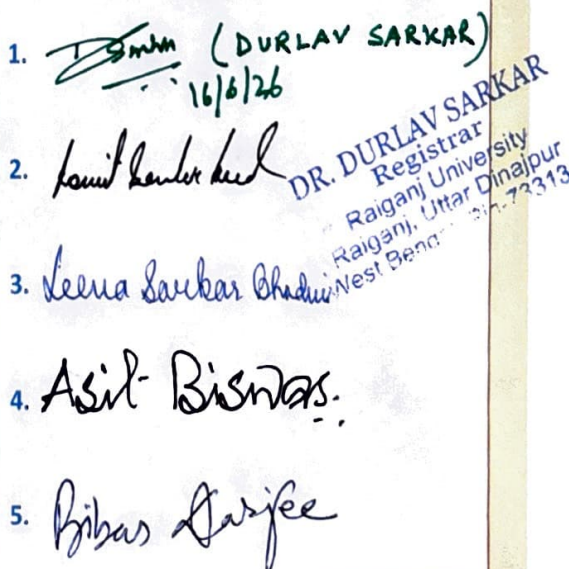 1. (DURLAV SARKAR)
16/6/26
DR. DURLAV SARKAR
Registrar
Raiganj University
Raiganj, Uttar Dinajpur
West Beng Pin-73313
2.
3. Leena Sarkar
4. Asit Biswas.
5. Bibas